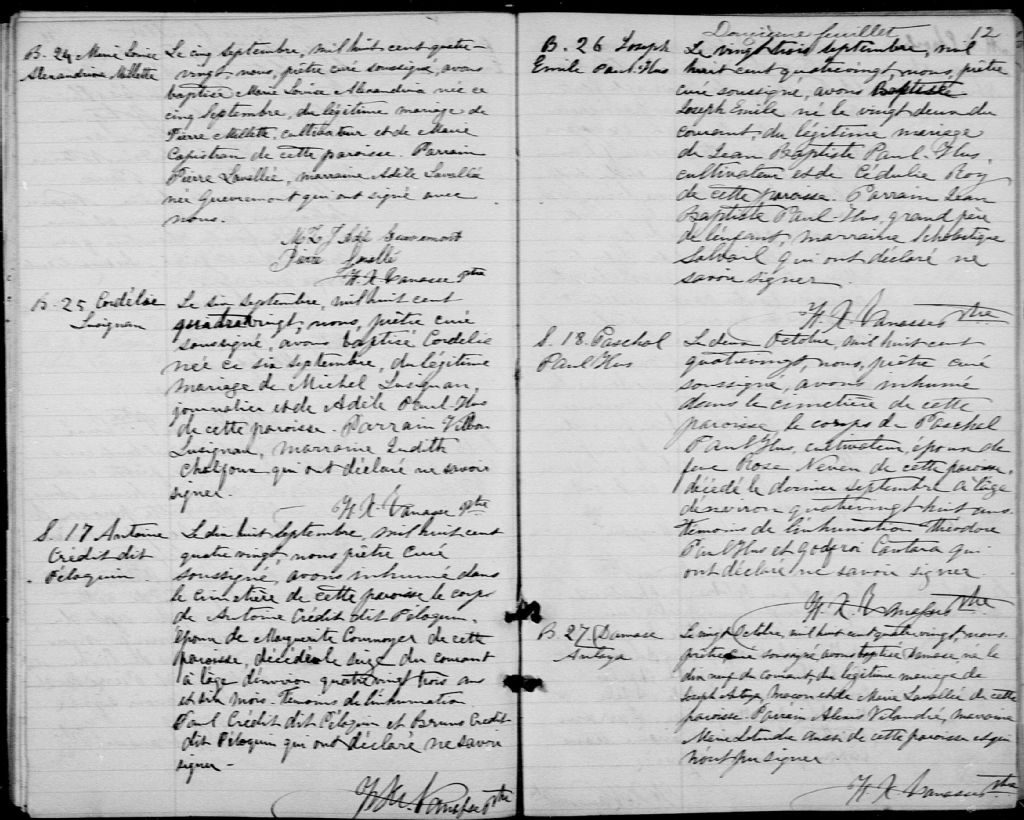 B. 24 Marie Louise
Alexandrina Millette
Le cinq septembre, mil huit cent quatre-
vingt, nous, prêtre curé soussigné, avons
baptisé Marie Louise Alexandrina née ce
cinq septembre, du légitime mariage de
Pierre Millette, cultivateur et de Marie
Capistran de cette paroisse. Parrain
Pierre Lavallée, marraine Adèle Lavallée
née Guevremont qui ont signé avec
nous.
Guevremont
Pierre
H. X. Vanasse Ptre
B. 25 Cordélie
Lusignan
Le six septembre, mil huit cent
quatrevingt, nous, prêtre curé
soussigné, avons baptisé Cordélie
née ce six septembre, du légitime
mariage de Michel Lusignan,
journalier et de Adèle Paul-Hus
de cette paroisse. Parrain
Lusignan, marraine Judith
qui ont déclaré ne savoir
signer.
H. X. Vanasse Ptre
S. 17 Antoine
Crédit dit
Péloquin
Le dix huit Septembre, mil huit cent
quatre vingt, nous prêtre curé
soussigné, avons inhumé dans
le cimetière de cette paroisse le corps
de Antoine Crédit dit Péloquin,
époux de Marguerite Cournoyer de cette
paroisse, décédé le seize du courant
à l'âge d'environ quatre vingt trois ans
et six mois. Temoins de l'inhumation
Paul Crédit dit Péloquin et Bruno Crédit
dit Péloquin qui ont déclaré ne savoir
signer -
H. X. Vanasse Ptre
Douzième feuillet 12
B. 26 Joseph
Emile Paul-Hus
Le vingt trois septembre, mil
huit cent quatrevingt, nous, prêtre
curé soussigné, avons Baptisé
Joseph Emile né le vingt deux du
courant, du légitime mariage
de Jean Baptiste Paul-Hus,
cultivateur et de Cédulie Roy
de cette paroisse. Parrain Jean
Baptiste Paul-Hus, grand père
de l'enfant, marraine Scholastique
Salvail qui ont déclaré ne
savoir signer.
H. X. Vanasse Ptre
S. 18. Paschal
Paul Hus
Le deux Octobre, mil huit cent
quatrevingt, nous, prêtre curé
soussigné, avons inhumé
dans le cimetière de cette
paroisse, le corps de Paschal
Paul Hus, cultivateur, époux de
feue Rose Neven de cette paroisse,
décédé le dernier septembre à l'âge
d'environ quatrevingt huit ans.
témoins de l'inhumation Théodore
Paul Hus et Godfroi Cantara qui
ont déclaré ne savoir signer.
H. X. Vanasse Ptre
B. 27 Damase
Antaya
Le vingt Octobre, mil huit cent quatre vingt, nous
prêtre curé soussigné avons baptisé Damase, né le
dix neuf du courant, du légitime mariage de
Joseph Antaya macon et de Marie Lavallée de cette
paroisse. Parrain Alexis Vilandré, marraine
Marie aussi de cette paroisse et qui
n'ont pu signer.
H. X. Vanasse Ptre